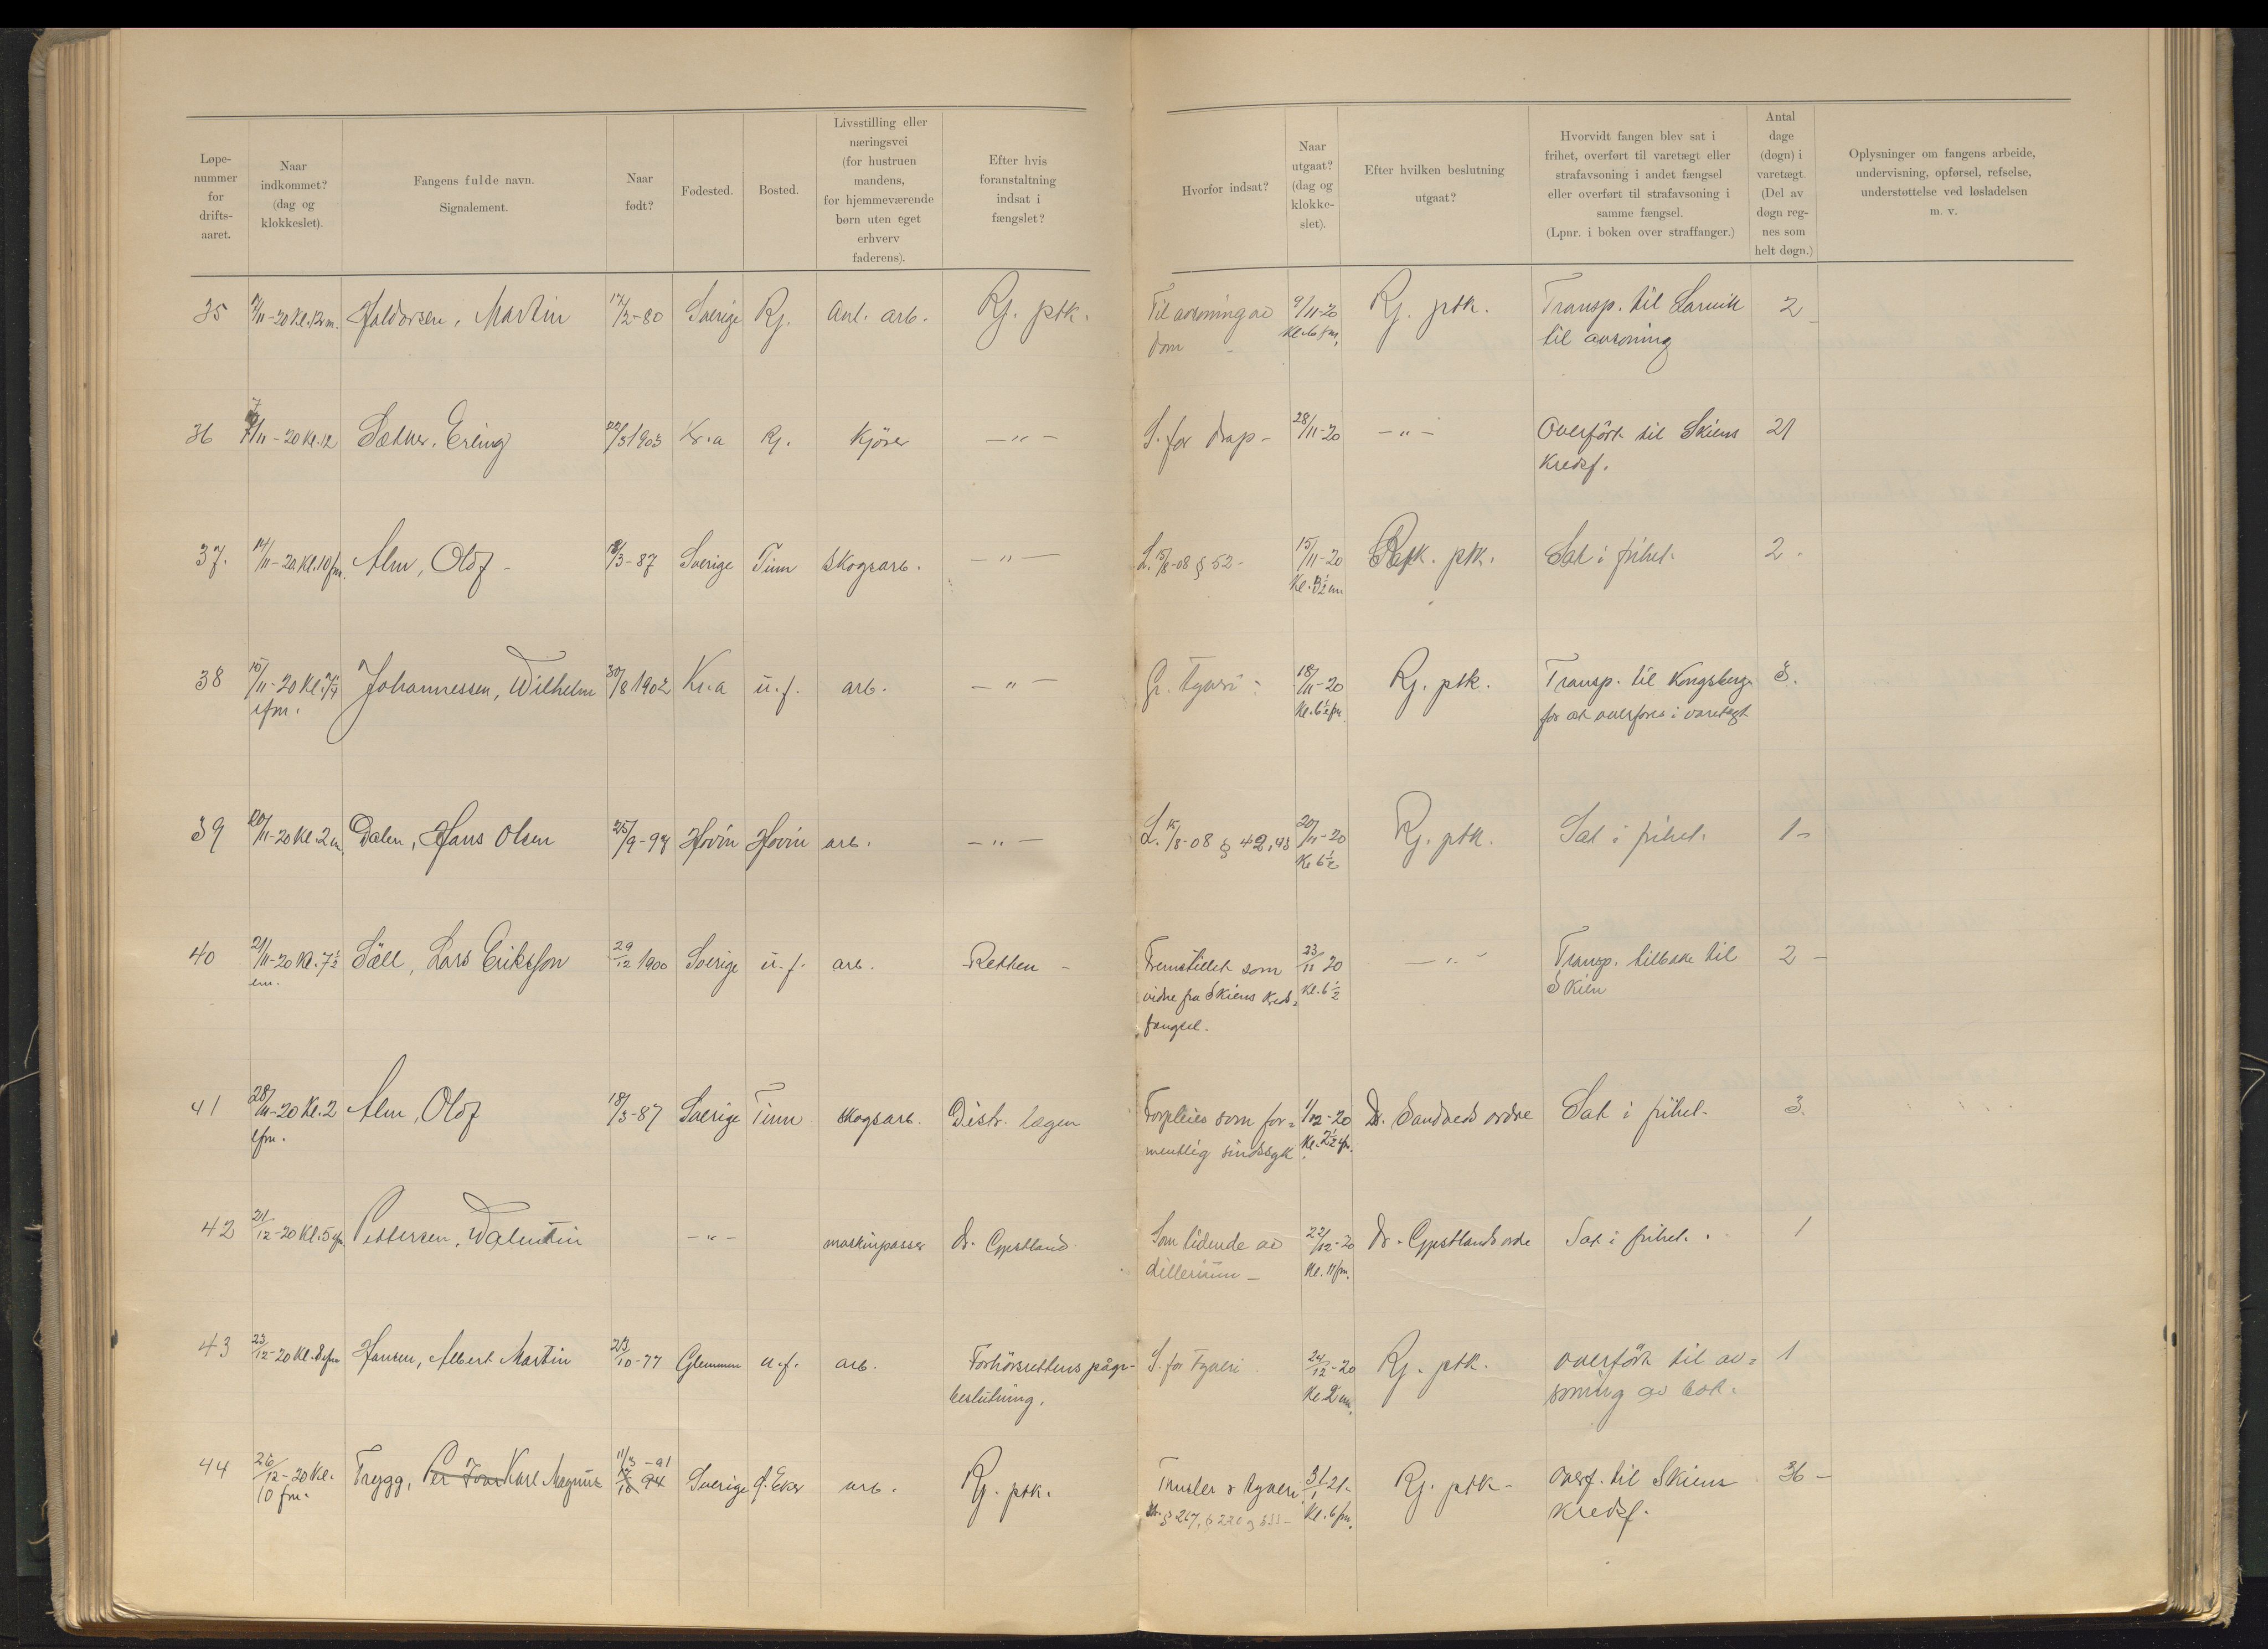 Løpe-
nummer
for
drifts-
aaret.
Naar
indkommet?
(dag og
klokkeslet).
Fangens fulde navn.
Signalement.
Naar
født?
Fødested.
Bosted.
Livsstilling eller
næringsvei
(for hustruen
mandens,
for hjemmeværende
børn uten eget
erhverv
faderens).
Efter hvis
foranstaltning
indsat i
fængslet?
Hvorfor indsat?
Naar
utgaat?
(dag og
klokke-
slet).
Efter hvilken beslutning
utgaat?
Hvorvidt fangen blev sat i
frihet, overført til varetægt eller
strafavsoning i andet fængsel
eller overført til strafavsoning i
samme fængsel.
(Lpnr. i boken over straffanger.)
Antal
dage
(døgn) i
varetægt.
(Del av
døgn reg-
nes som
helt døgn.)
Oplysninger om fangens arbeide,
undervisning, opførsel, refselse,
understøttelse ved løsladelsen
m. v.
35 Haldorsen, Martin 17/2-80 Sverige Rj. Anl. arb. Rj. ptk. Til avsoning av 9/11-20 Rj. ptk. Transp. til Larvik 2
dom Kl. 6 fm. til avsoning
36 7/11-20 Kl. 12 Sætner, Erling 22/3 1903 Kr.a Rj. Kjører —〃— S. for drap - 28/11-20 —〃— Overført til Skiens 21
Kredsf.
37. 14/11-20 Kl. 10 fm. Alm, Olof - 18/3-87 Sverige Tinn Skogsarb. —〃— L. 15/8-08 § 52 - 15/11-20 ptk. Sat i frihet. 2.
38 15/11-20 Kl. Johannessen, Wilhelm 30/8 1902 Kr.a u.f. arb. —〃— Gr. tyveri - 18/11-20 Rj. ptk. Transp. til Kongsberg 3.
efm. Kl. 6½ fm. for at overføres i varetægt
39 20/11-20 Kl. 2 Dalen, Hans Olsen 25/9-98 Hovin Hovin arb. —〃— L. 15/8-08 § 42, 43 20/11-20 Rj. ptk. Sat i frihet. 1-
Kl. 6½
40 21/11-20 Kl. 7½ Säll, Lars Eriksson 29/12 1900 Sverige u.f. arb. Retten - Fremstillet som 23/11 20 —〃— Transp. tilbake til 2 -
em. vidne fra Skiens Kreds= Kl. 6½ Skien
fængsel.
41 28/11-20 Kl. 2 Alm, Olof 18/3-87 Sverige Tinn skogsarb. Distr. lægen Forpleies som for= 1/12-20 Dr. Sandveds ordre Sat i frihet. 3.
efm. mentlig sindssyk Kl. 2½ efm.
42 21/12-20 Kl. 5 efm. Pettersen, Walentin —〃— maskinpasser Dr. Som lidende av 22/12-20 Dr. ordre Sat i frihet. 1
dillerium - Kl. 11 fm.
43 23/12-20 Kl. 8 efm Hansen, Albert Martin 23/10-77 Glemmen u.f. arb. Forhørsrettens pågr- S. for tyveri 24/12-20 Rj. ptk. overført til av= 1
beslutning. Kl. 2 em. soning av bøt.
44 26/12-20 Kl. Trygg, Per Ivar Karl Magnus 11/3 -91 Sverige Ø. Eker arb. Rj. ptk. Trusler & tyveri 31/1 21- Rj. ptk - Overf. til Skiens 36 -
10 fm. § 267, Kl. 6 fm. Kredsf.